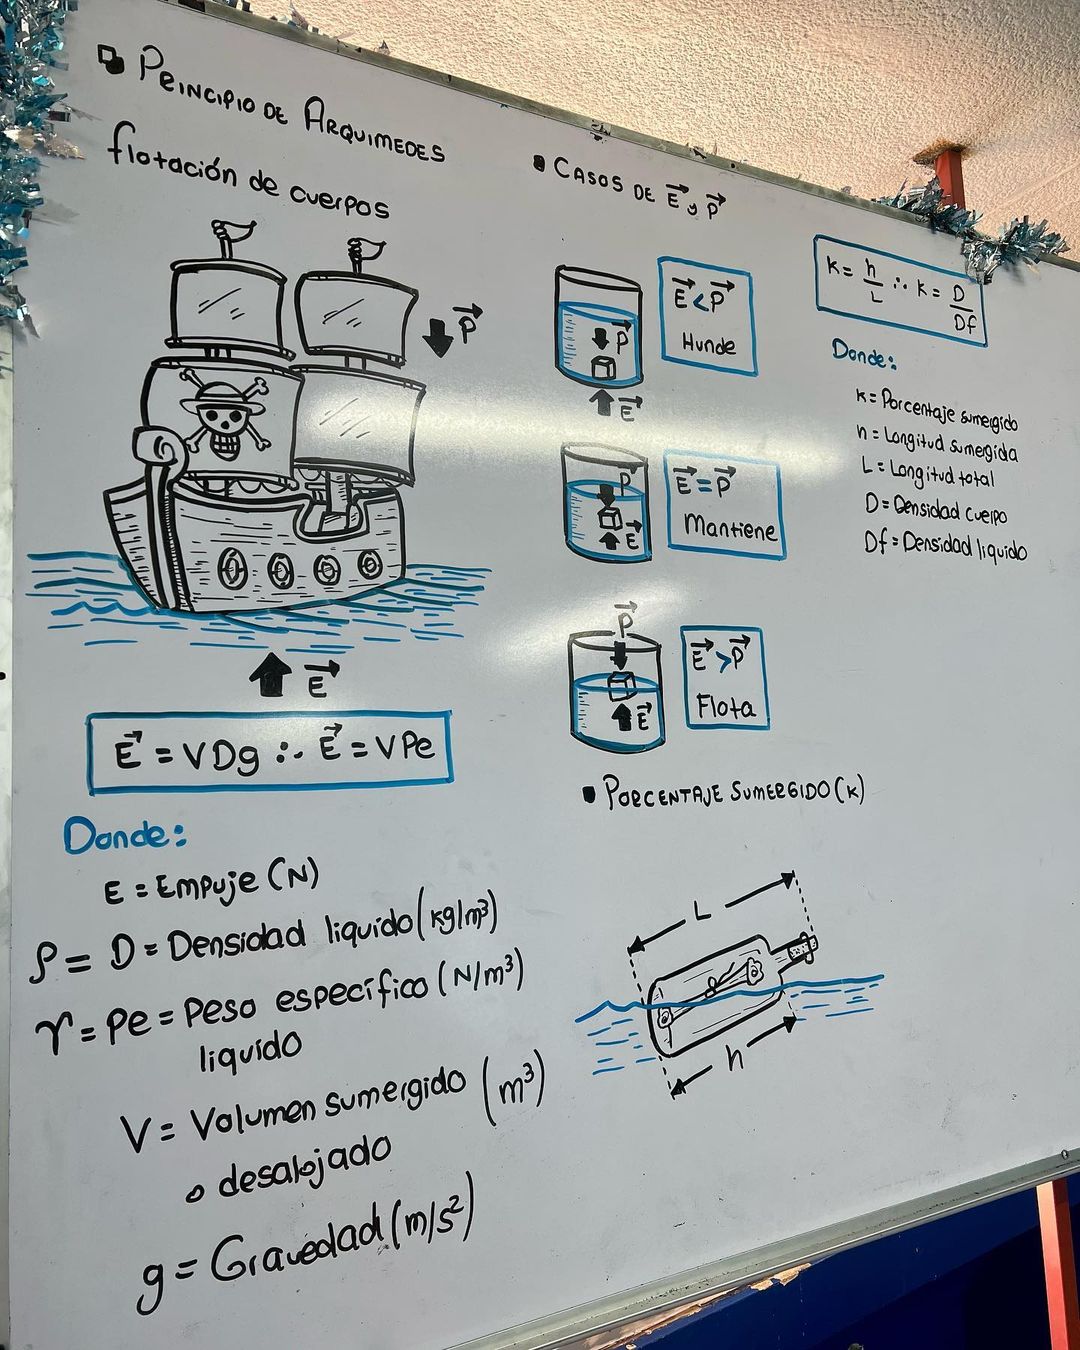 PRINCIPIO DE ARQUIMEDES
flotación de cuerpos
P
E
E = VDg ∴ E = VPe
Donde:
E = Empuje (N)
ρ = D = Densidad liquido (kg/m³)
γ = Pe = Peso específico (N/m³)
liquido
V = Volumen sumergido (m³)
o desalojado
g = Gravedad (m/s²)
CASOS DE E y P
P
E
E < P
Hunde
P
E
E = P
Mantiene
P
E
E > P
Flota
PORCENTAJE SUMERGIDO (K)
L
h
k = h/L ∴ k = D/Df
Donde:
k = Porcentaje sumergido
h = Longitud sumergida
L = Longitud total
D = Densidad cuerpo
Df = Densidad liquido